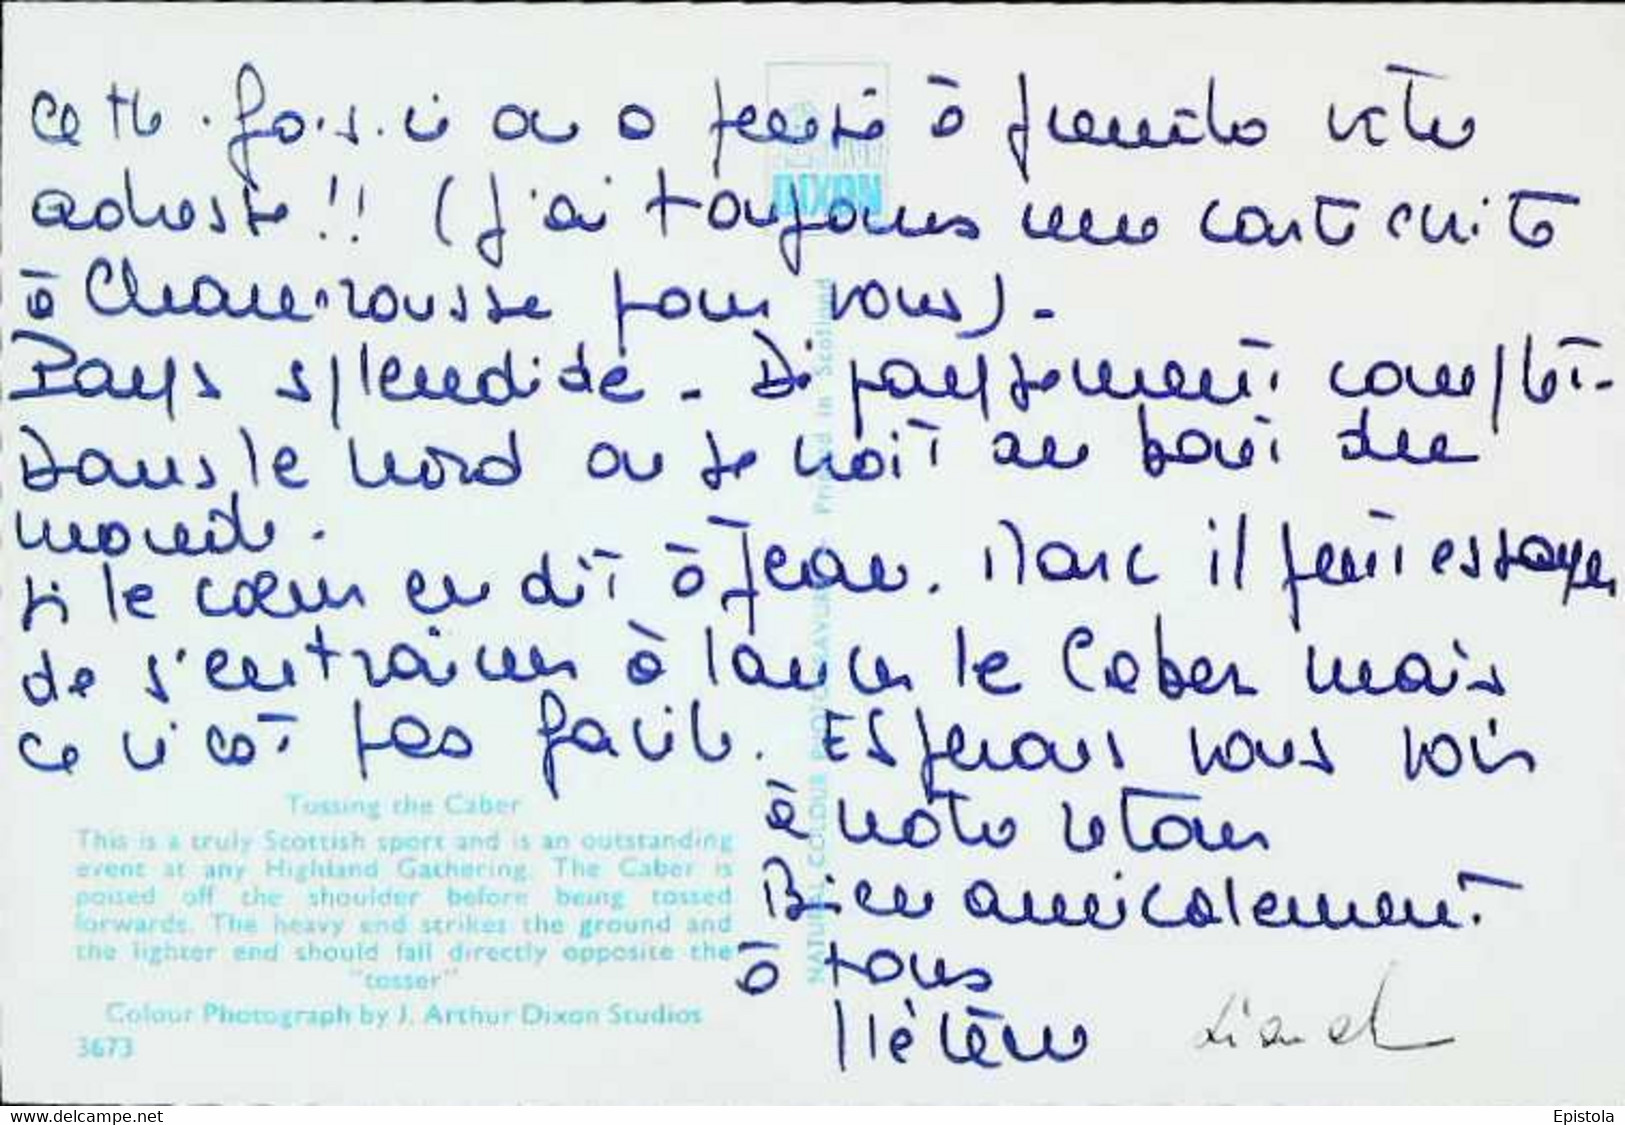 Cette fois-ci on a pensé à prendre votre
adresse !! (j'ai toujours une carte écrite
à Chamrousse pour vous) -
Pays splendide - Dépaysement complet -
Dans le nord on se croit au bout du
monde.
Si le cœur en dit à Jean. Marc il peut essayer
de s'entrainer à lancer le Caber mais
ce n'est pas facile. Espérons vous voir
à notre retour
Bien amicalement
à tous
Hélène Lionel
DIXON
NATURAL COLOUR PHOTOGRAVURE Printed in Scotland
Tossing the Caber
This is a truly Scottish sport and is an outstanding
event at any Highland Gathering. The Caber is
poised off the shoulder before being tossed
forwards. The heavy end strikes the ground and
the lighter end should fall directly opposite the
"tosser"
Colour Photograph by J. Arthur Dixon Studios
3673
www.delcampe.net
Epistola